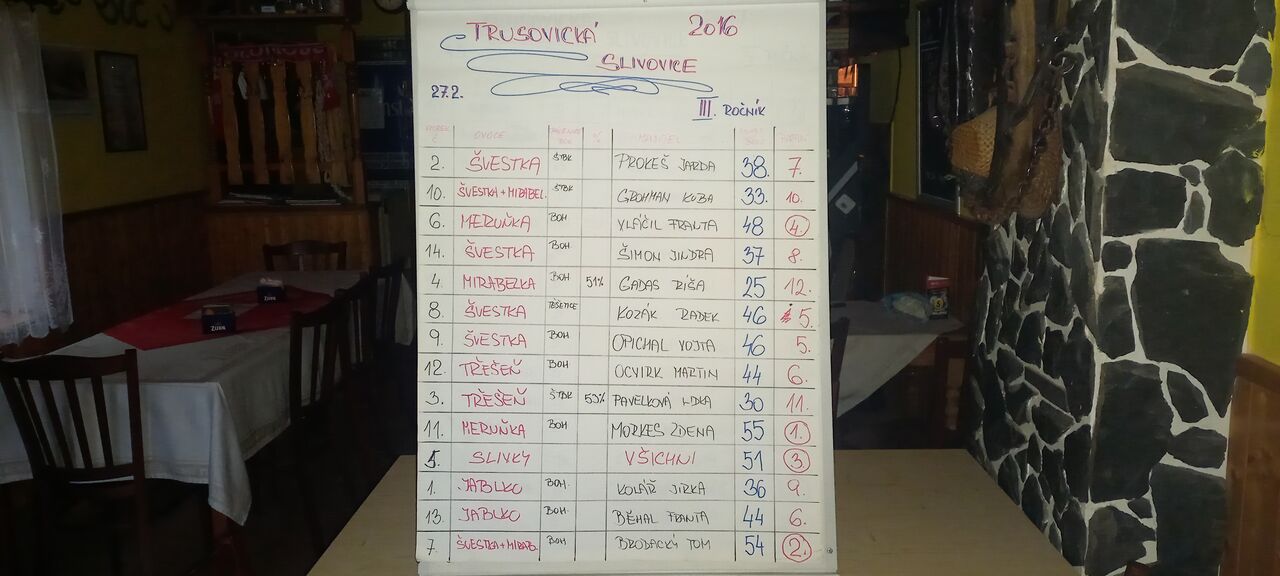 TRUSOVICKÁ 2016
SLIVOVICE
27.2. III. ROČNÍK
OVOCE
2. ŠVESTKA ŠTBK PROKEŠ JARDA 38. 7.
10. ŠVESTKA + MIRABEL. ŠTBK GROHMAN KUBA 33. 10.
6. MERUŇKA BOH VLÁČIL FRANTA 48 4.
14. ŠVESTKA BOH ŠIMON JINDRA 37 8.
4. MIRABELKA BOH 51% GADAS ŘÍŠA 25 12.
8. ŠVESTKA TĚŠETICE KOZÁK RADEK 46 5.
9. ŠVESTKA BOH OPICHAL VOJTA 46 5.
12. TŘEŠEŇ BOH OCVIRK MARTIN 44 6.
3. TŘEŠEŇ ŠTBK PAVELKOVÁ LIDKA 30 11.
11. MERUŇKA BOH MORKES ZDENA 55 1.
5. SLIVKY VŠICHNI 51 3
1. JABLKO BOH. KOLÁŘ JIRKA 36 9.
13. JABLKO BOH. BĚHAL FRANTA 44 6.
7. ŠVESTKA+MIRAB. BOH BRODACKÝ TOM 54 2.